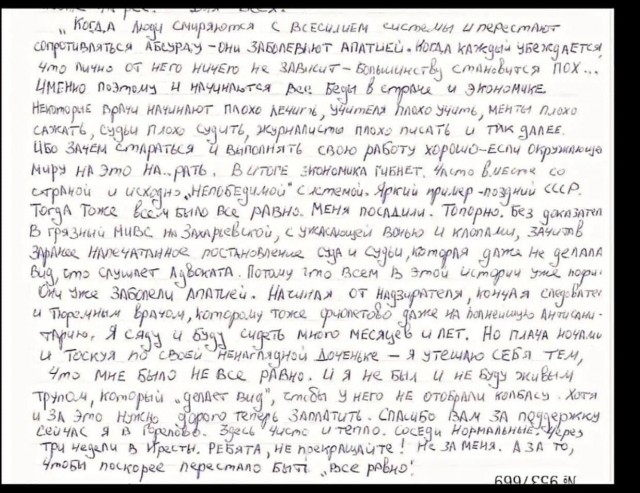 „Когда люди смиряются с всесилием системы и перестают
сопротивляться абсурду – они заболевают апатией. Когда каждый убеждается,
что лично от него ничего не зависит – большинству становится пох...
Именно поэтому и начинаются все беды в стране и экономике.
Некоторые врачи начинают плохо лечить, учителя плохо учить, менты плохо
сажать, судьи плохо судить, журналисты плохо писать и так далее.
Ибо зачем стараться и выполнять свою работу хорошо – если окружающе
миру на это на..рать. В итоге экономика гибнет. Часто вместе со
страной и исходно „непобедимой" системой. Яркий пример – поздний СССР.
Тогда тоже всем было все равно. Меня посадили. Топорно. Без доказател
В грязный ИИВС на Захарьевской, с ужасающей вонью и клопами, зачитав
заранее напечатанное постановление суда и судьи, которая даже не делала
вид, что слушает адвоката. Потому что всем в этой истории уже пори
Они уже заболели апатией. Начиная от надзирателя, кончая следовател
и тюремным врачом, которому тоже фиолетово даже на полнейшую антисани-
тарию. Я сяду и буду сидеть много месяцев и лет. Но плача ночами
и тоскуя по своей ненаглядной доченьке – я утешаю себя тем,
что мне было не все равно. И я не был и не буду живым
трупом, который „делает вид", чтобы у него не отобрали колбасу. Хотя
и за это нужно дорого теперь заплатить. Спасибо вам за поддержку
Сейчас я в Горелово. Здесь чисто и тепло. Соседи нормальные. Через
три недели в Кресты. Ребята, не прекращайте! Не за меня. А за то,
чтобы поскорее перестало быть „все равно".
№ 953/669